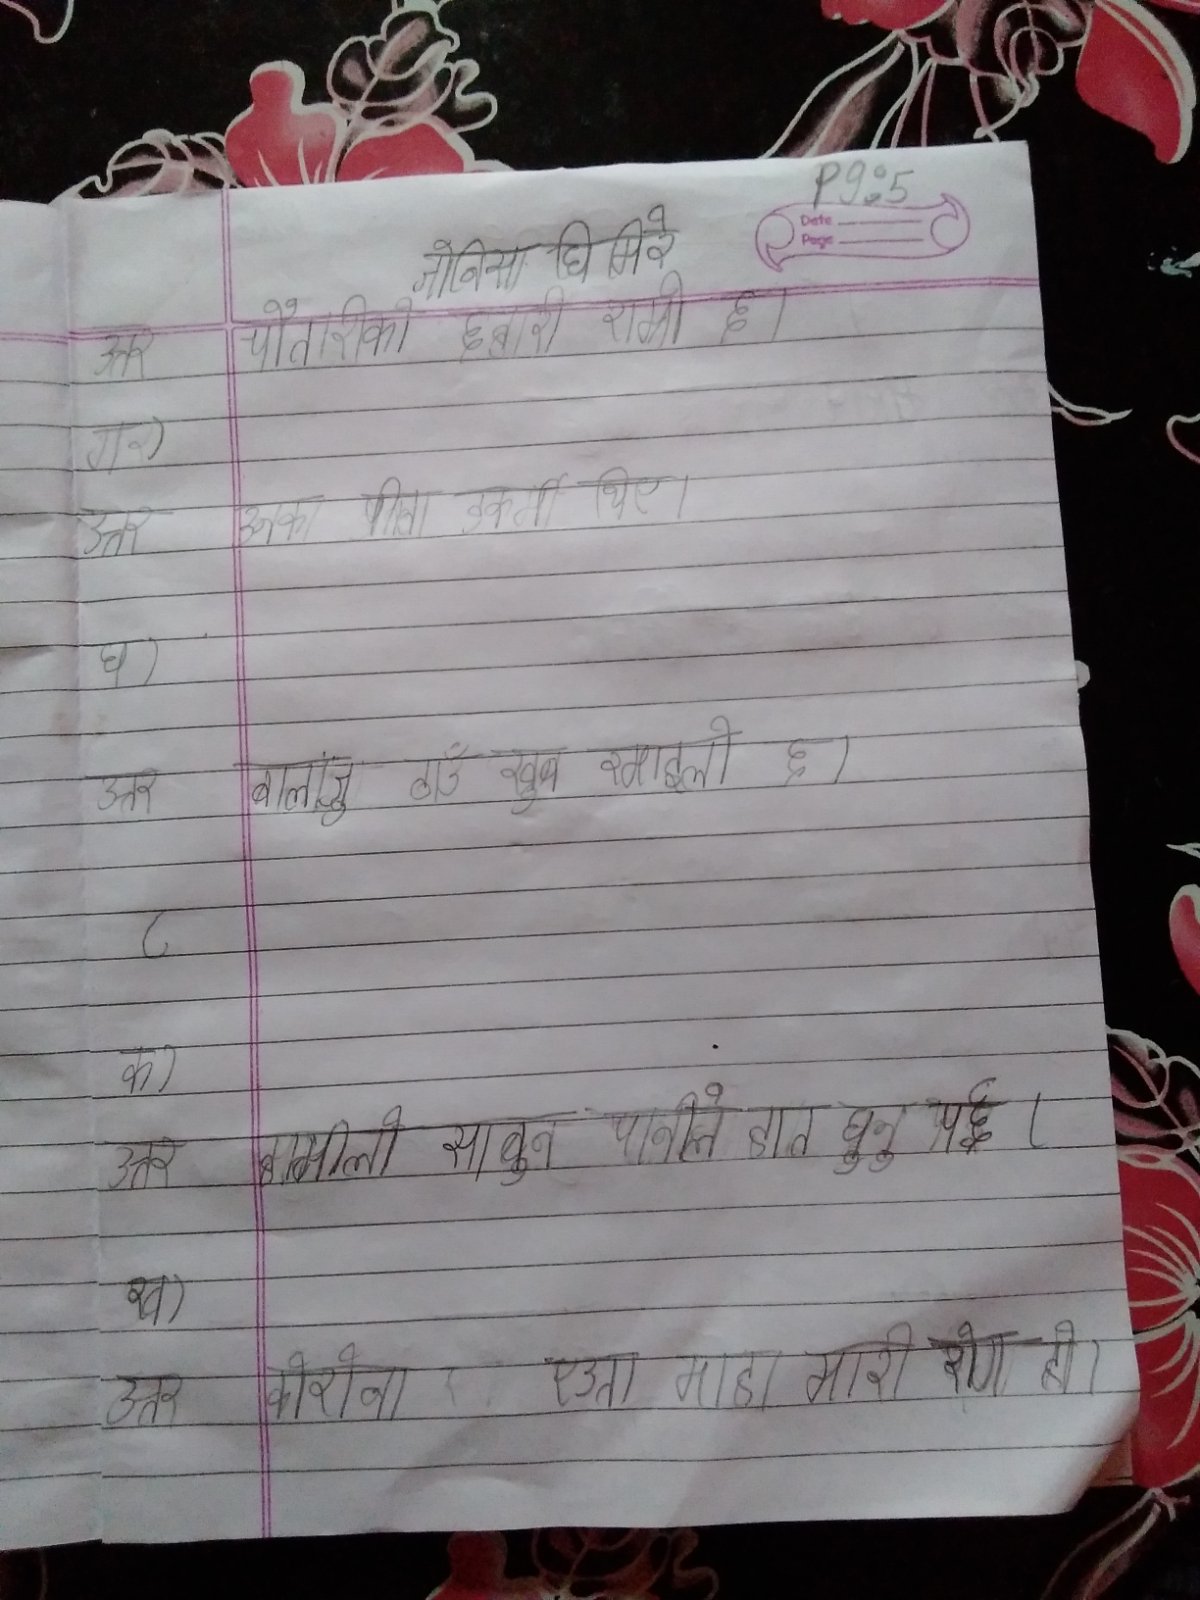 Pg:5
Date
Page
जेनिसा घिमिरे
उत्तर चौतारीको हजारी राम्रो छ।
ग)
उत्तर उनका पिता डकर्मी थिए।
घ)
उत्तर बालाजु ठाउँ खुब रमाइलो छ।
८
क)
उत्तर हामीलो साबुन पानीले हात धुनु पर्छ।
ख)
उत्तर कोरोना एउता माहा मारी रोग हो।